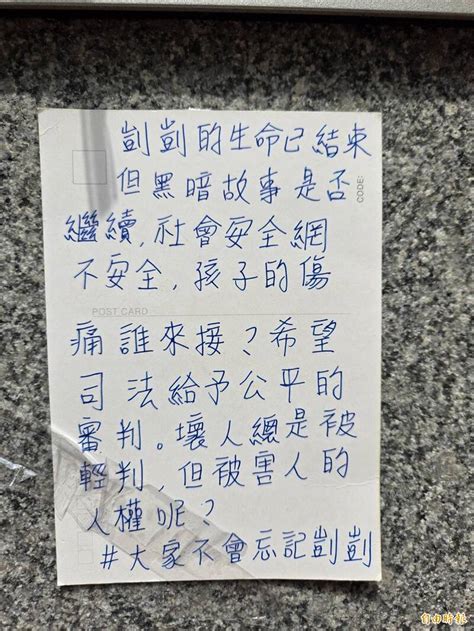 剴剴的生命已結束
但黑暗故事是否
CODE:
繼續,社會安全網
不安全,孩子的傷
POST CARD
痛誰來接?希望
司法給予公平的
審判。壞人總是被
輕判,但被害人的
人權呢?
#大家不會忘記剴剴
自由時報